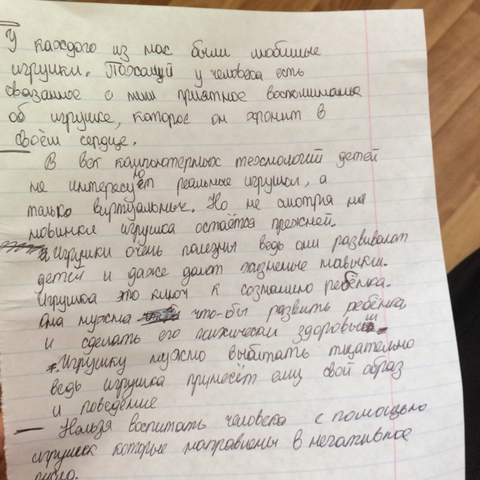 У каждого из нас были любимые
игрушки. Пожалуй у человека есть
связанное с ним приятное воспоминание
об игрушке, которое он хранит в
своём сердце.
В век компьютерных технологий детей
не интересуют реальные игрушки, а
только виртуальные. Но не смотря на
новинки игрушка остаётся прежней.
Игрушки очень полезны ведь они развивают
детей и даже дают жизненные навыки.
Игрушка это ключ к сознанию ребёнка.
Она нужна что-бы развить ребёнка
и сделать его психически здоровым.
Игрушку нужно выбитать тщательно
ведь игрушка принесёт ему свой образ
и поведение
Нельзя воспитать человека с помощью
игрушек которые направлены в негативное
русло.